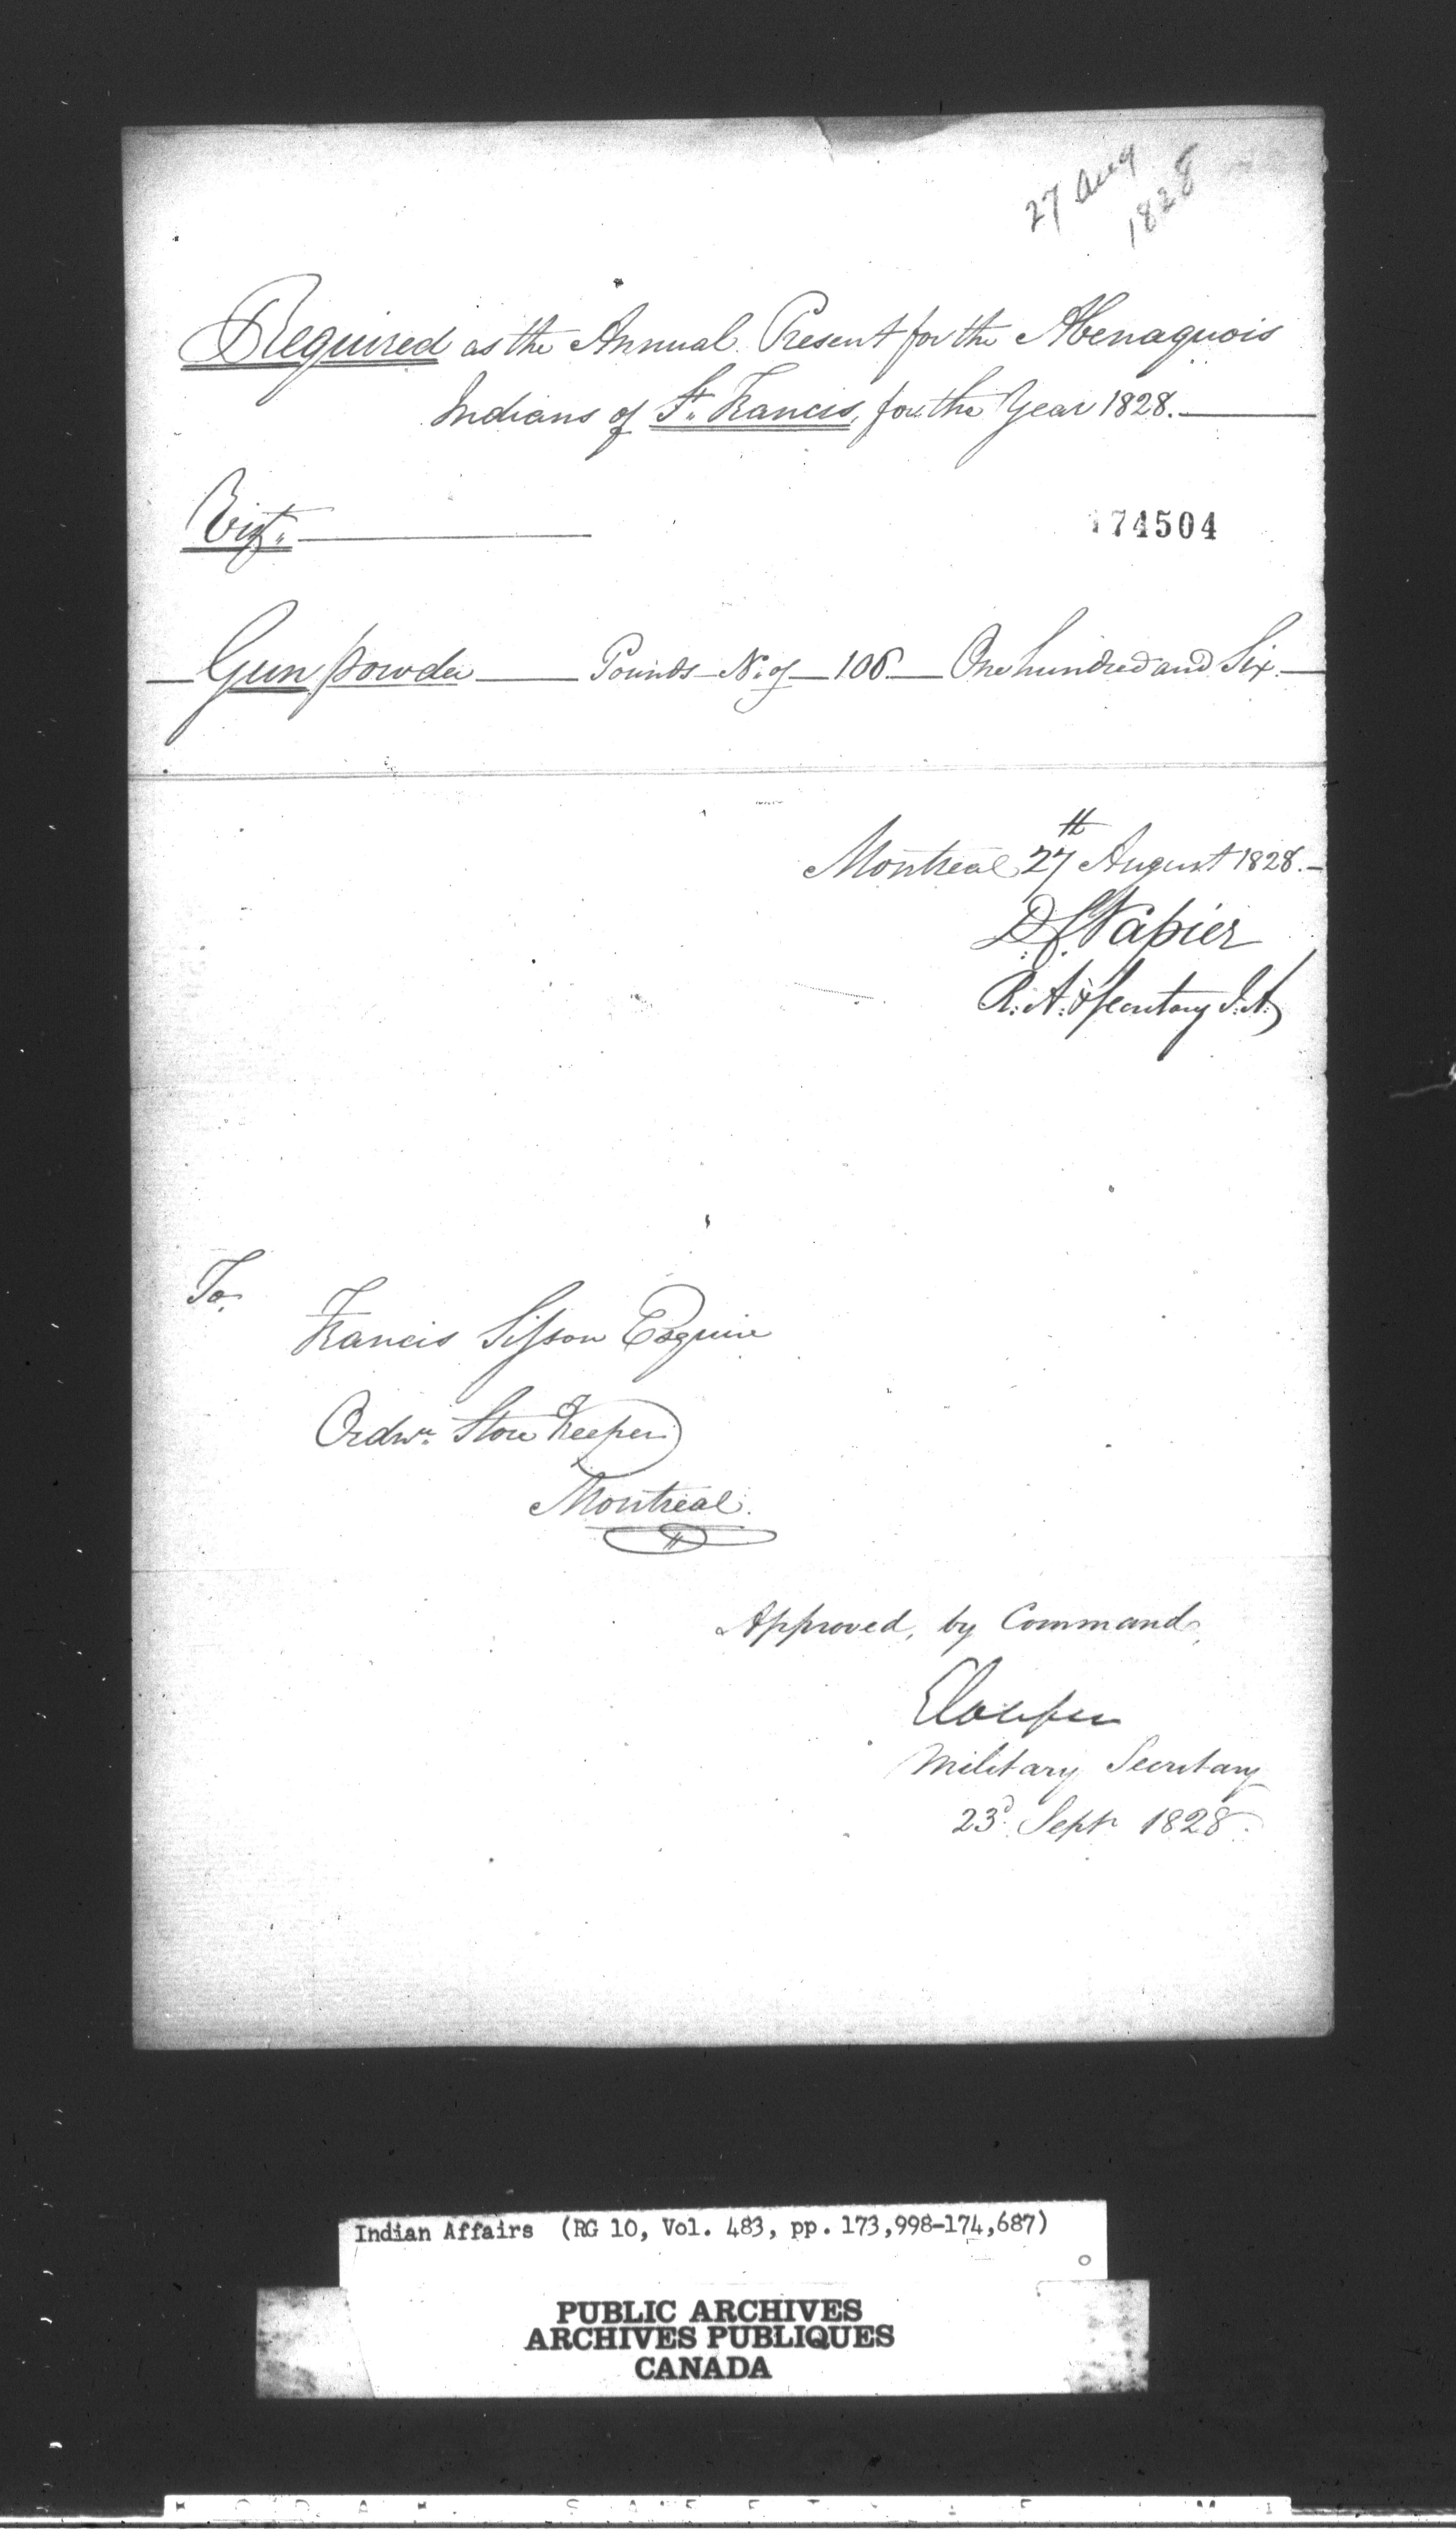 27 Aug
1828
Required as the Annual Present for the Abenaquois
Indians of St. Francis, for the Year 1828.
Vizt.
174504
Gun powder Pounds No. of 106 One hundred and Six.
Montreal 27th August 1828.
D. C. Napier
R. A. & Secretary I. A.
To
Francis Sisson Esquire
Ordnce. Store Keeper
Montreal.
Approved, by Command,
Couper
Military Secretary
23d. Sept 1828.
Indian Affairs (RG 10, Vol. 483, pp. 173,998-174,687)
PUBLIC ARCHIVES
ARCHIVES PUBLIQUES
CANADA